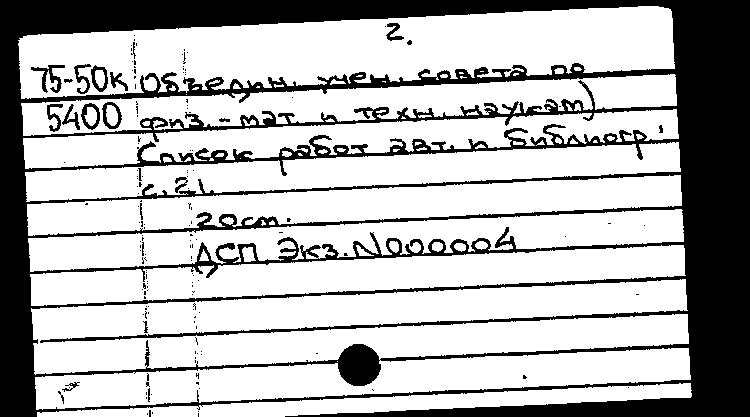 2.
75-50к Объедин. учен. совета по
5400 физ.-мат. и техн. наукам).
Список работ авт. и библиогр.:
с. 21.
20см.
ДСП Экз.N000004